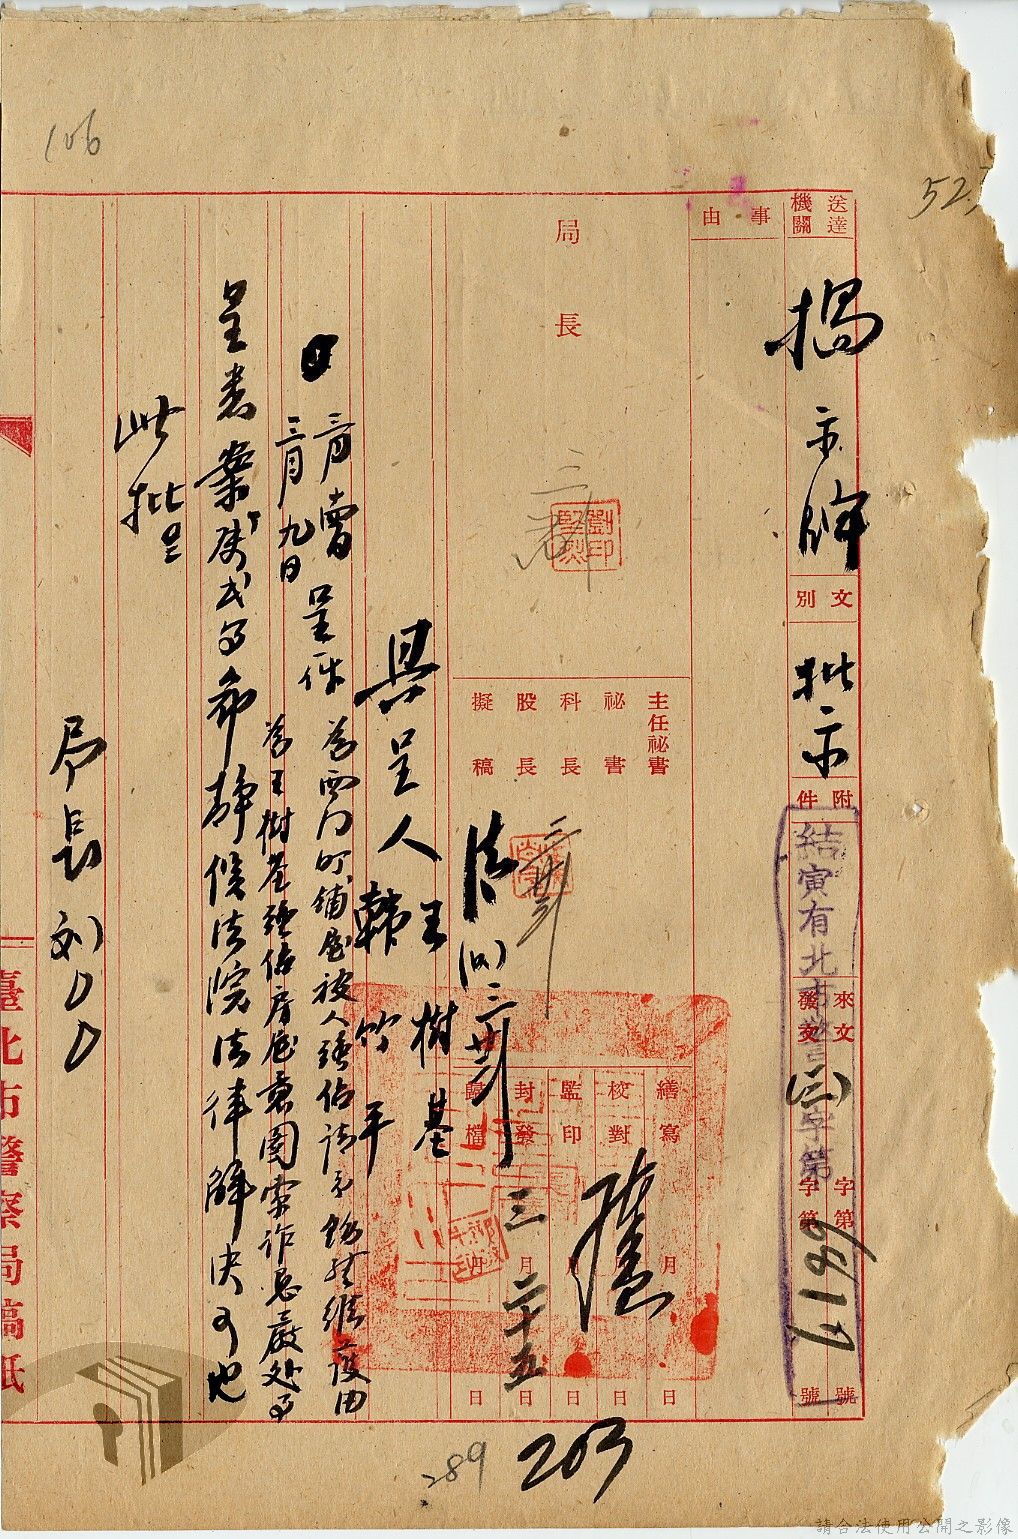 106
52
送達機關
揭示牌
文別
批示
附件
結寅有北市警(三)字第6189號
來文 字第 號
發文 字第 號
事由
局長
主任祕書
祕書
科長
股長
擬稿
繕寫 月 日
校對 月 日
監印 月 日
封發 三月二十五日
歸檔 月 日
具呈人 王樹基
韓竹平
三月 日呈一件 為西門町舖屋被人強佔請予 維護由
三月九日 為王樹基強佔房屋意圖索詐懇嚴處由
呈悉案 仰靜候法院法律解決可也
此批
局長 刘
臺北市警察局稿紙
203
289
請合法使用公開之影像